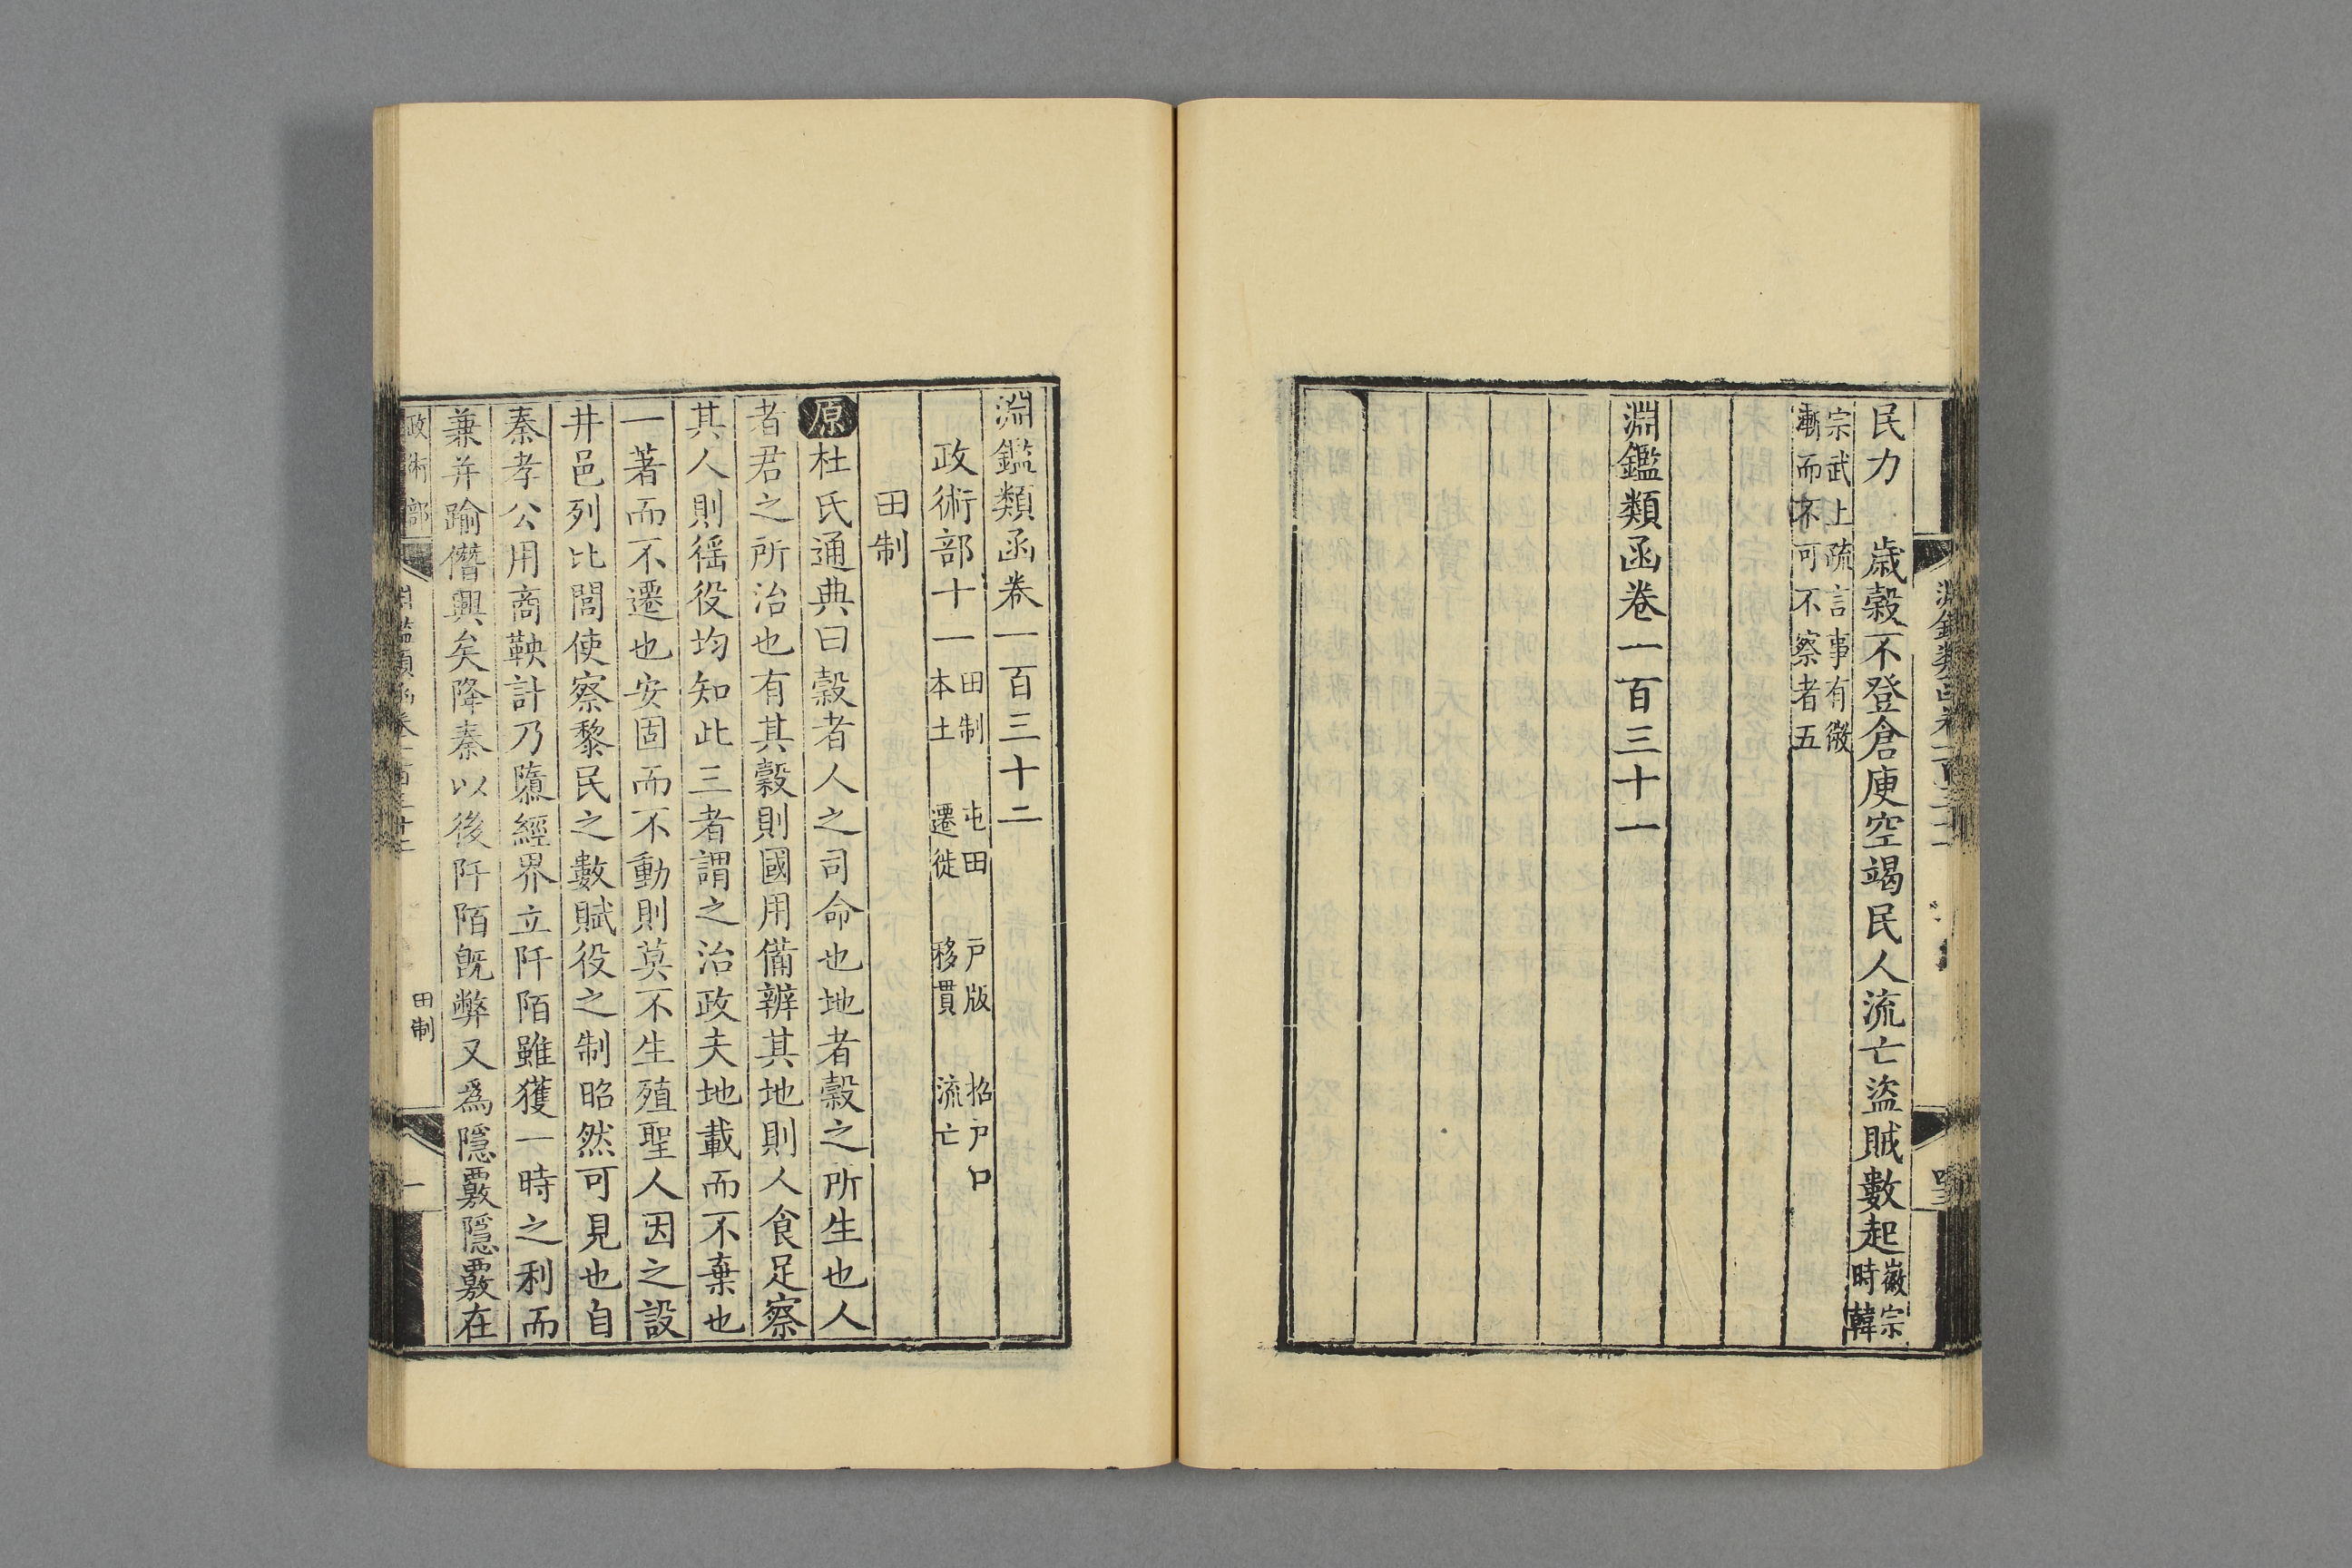 民力　歳榖不登倉庾空竭民人流亡盜賊數起徽宗時韓
宗武上疏言事有微漸而不可不察者五
淵鑑類函卷一百三十一
淵鑑類函卷一百三十二
政術部十一　田制　屯田　戸版　招戸口　本土　遷徙　移貫　流亡
田制
原杜氏通典曰穀者人之司命也地者穀之所生也人
者君之所治也有其穀則國用備辨其地則人食足察
其人則徭役均知此三者謂之治政夫地載而不棄也
一著而不遷也安固而不動則莫不生殖聖人因之設
井邑列比閭使察黎民之數賦役之制昭然可見也自
秦孝公用商鞅計乃隳經界立阡陌雖獲一時之利而
兼并踰僭興矣降秦以後阡陌旣弊又爲隱覈隱覈在
政術部
淵鑑類函卷一百三十二
田制
一